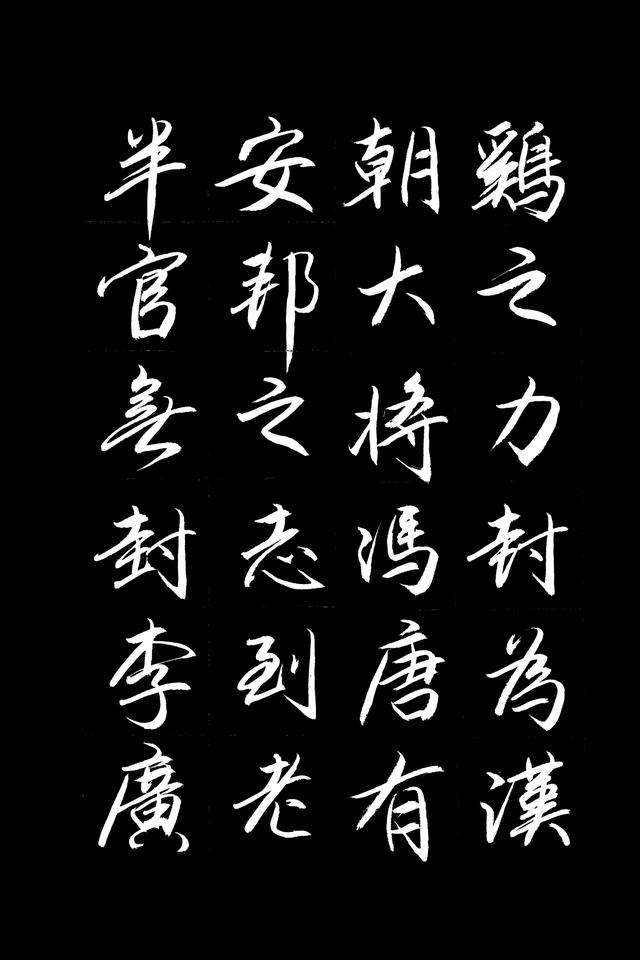 鷄之力封為漢
朝大將馮唐有
安邦之志到老
半官無封李廣